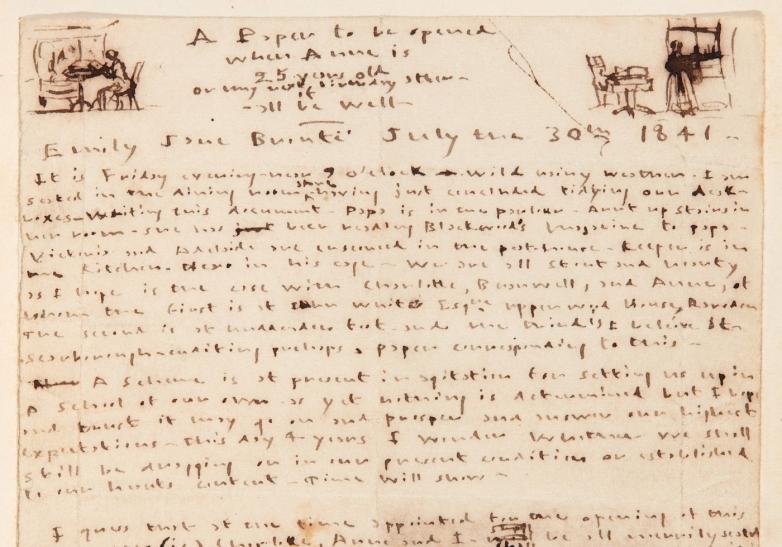 A Paper to be opened
when Anne is
25 years old
or my next birthday after—
if
—all be well—
Emily Jane Brontë July the 30th 1841.
It is Friday evening—near 9 o'clock—wild rainy weather. I am
seated in the dining room alone having just concluded tidying our desk—
boxes—writing this document—Papa is in the parlour. Aunt up stairs in
her room—she has just been reading Blackwood's Magazine to papa—
Victoria and Adelaide are ensconced in the peat-house—Keeper is in
the kitchen—Hero in his cage—We are all stout and hearty
as I hope is the case with Charlotte, Branwell, and Anne, of
whom the first is at John White Esqre upperwood House, Rawden
The second is at Luddenden foot and the third is I believe at—
Scarborough—enditing perhaps a paper corresponding to this—
A Scheme is at present in agitation for setting us up in
A School of our own as yet nothing is determined but I hope
and trust it may go on and prosper and answer our highest
expectations—This day 4-years I wonder whether we shall
still be dragging on in our present condition or established
to our hearts content—Time will show—
I guess that at the time appointed for the opening of this
Charlotte, Anne and I— be all merrily seated
shall